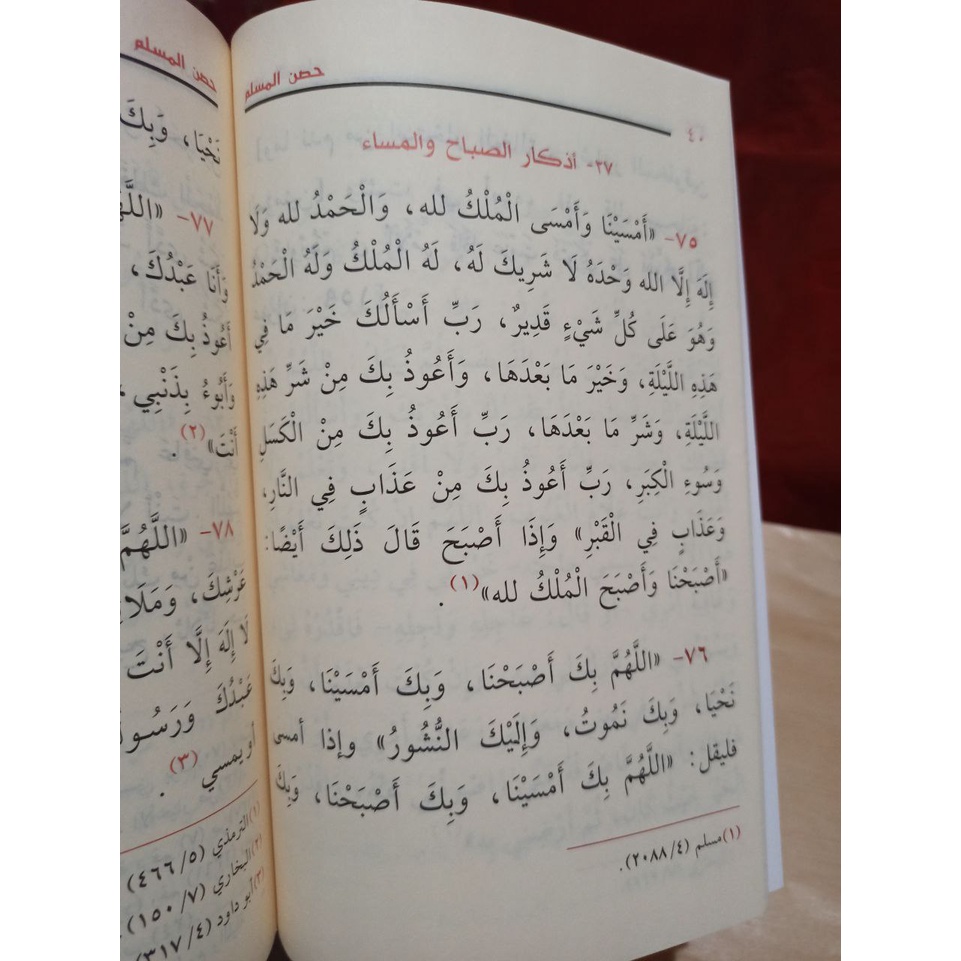 حصن المسلم
٤٠
٢٧- أذكار الصباح والمساء
٧٥- «أَمْسَيْنَا وَأَمْسَى الْمُلْكُ لله، وَالْحَمْدُ لله وَلَا
إِلَهَ إِلَّا الله وَحْدَهُ لَا شَرِيكَ لَهُ، لَهُ الْمُلْكُ وَلَهُ الْحَمْدُ
وَهُوَ عَلَى كُلِّ شَيْءٍ قَدِيرٌ، رَبِّ أَسْأَلُكَ خَيْرَ مَا فِي
هَذِهِ اللَّيْلَةِ، وَخَيْرَ مَا بَعْدَهَا، وَأَعُوذُ بِكَ مِنْ شَرِّ هَذِهِ
اللَّيْلَةِ، وَشَرِّ مَا بَعْدَهَا، رَبِّ أَعُوذُ بِكَ مِنْ الْكَسَلِ
وَسُوءِ الْكِبَرِ، رَبِّ أَعُوذُ بِكَ مِنْ عَذَابٍ فِي النَّارِ،
وَعَذَابٍ فِي الْقَبْرِ» وَإِذَا أَصْبَحَ قَالَ ذَلِكَ أَيْضًا:
«أَصْبَحْنَا وَأَصْبَحَ الْمُلْكُ لله»(١).
٧٦- «اللَّهُمَّ بِكَ أَصْبَحْنَا، وَبِكَ أَمْسَيْنَا، وَبِكَ
نَحْيَا، وَبِكَ نَمُوتُ، وَإِلَيْكَ النُّشُورُ» وإذا أمسى
فليقل: «اللَّهُمَّ بِكَ أَمْسَيْنَا، وَبِكَ أَصْبَحْنَا، وَبِكَ
(١) مسلم (٢٠٨٨/٤).
حصن المسلم
نَحْيَا، وَبِكَ
٧٧- «اللَّهُ
وَأَنَا عَبْدُكَ،
أَعُوذُ بِكَ مِنْ
وَأَبُوءُ بِذَنْبِي،
أَنْتَ»(٢).
٧٨- «اللَّهُمَّ
عَرْشِكَ، وَمَلَا
لَا إِلَهَ إِلَّا أَنْتَ
عَبْدُكَ وَرَسُو
أو يمسي(٣).
(١) الترمذي (٤٦٦/٥)
(٢) البخاري (١٥٠/٧).
(٣) أبو داود (٣١٧/٤)